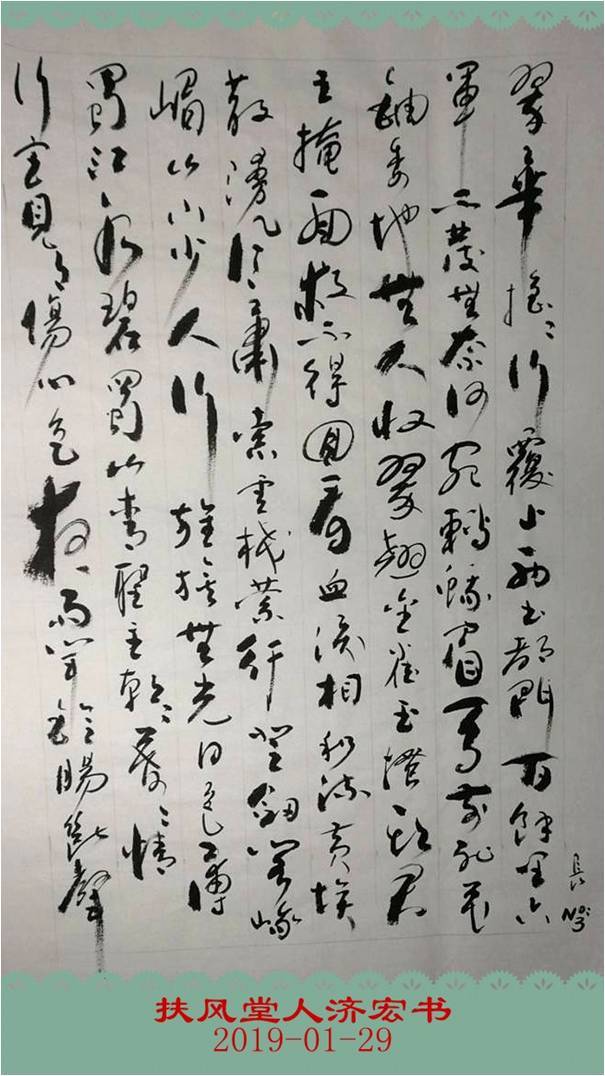 翠華摇〻行覆止西出都門百餘里六
軍不發無奈何宛轉蛾眉馬前死花
鈿委地無人收翠翹金雀玉搔頭君
王掩面救不得回看血淚相和流黄埃
散漫風蕭索雲棧縈紆登劍閣峨
嵋山下少人行旌旗無光日色薄
蜀江水碧蜀山青聖主朝〻暮〻情
行宮見月傷心色夜雨聞鈴腸斷聲
長 No:3
扶风堂人济宏书
2019-01-29